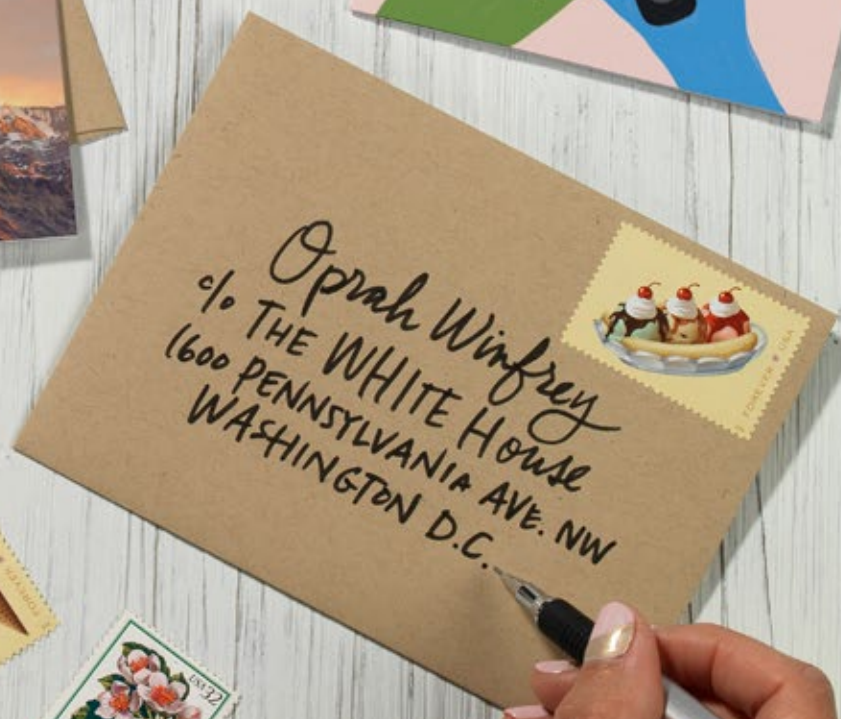 Oprah Winfrey
c/o THE WHITE House
1600 PENNSYLVANIA AVE. NW
WASHINGTON D.C.
FOREVER USA
FOREVER
USA 32